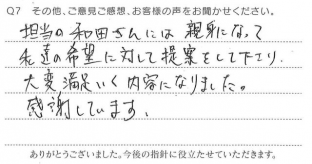 Q7 その他、ご意見ご感想、お客様の声をお聞かせください。
担当の和田さんには親身になって
私達の希望に対して提案をして下さり、
大変満足いく内容になりました。
感謝しています。
ありがとうございました。今後の指針に役立たせていただきます。